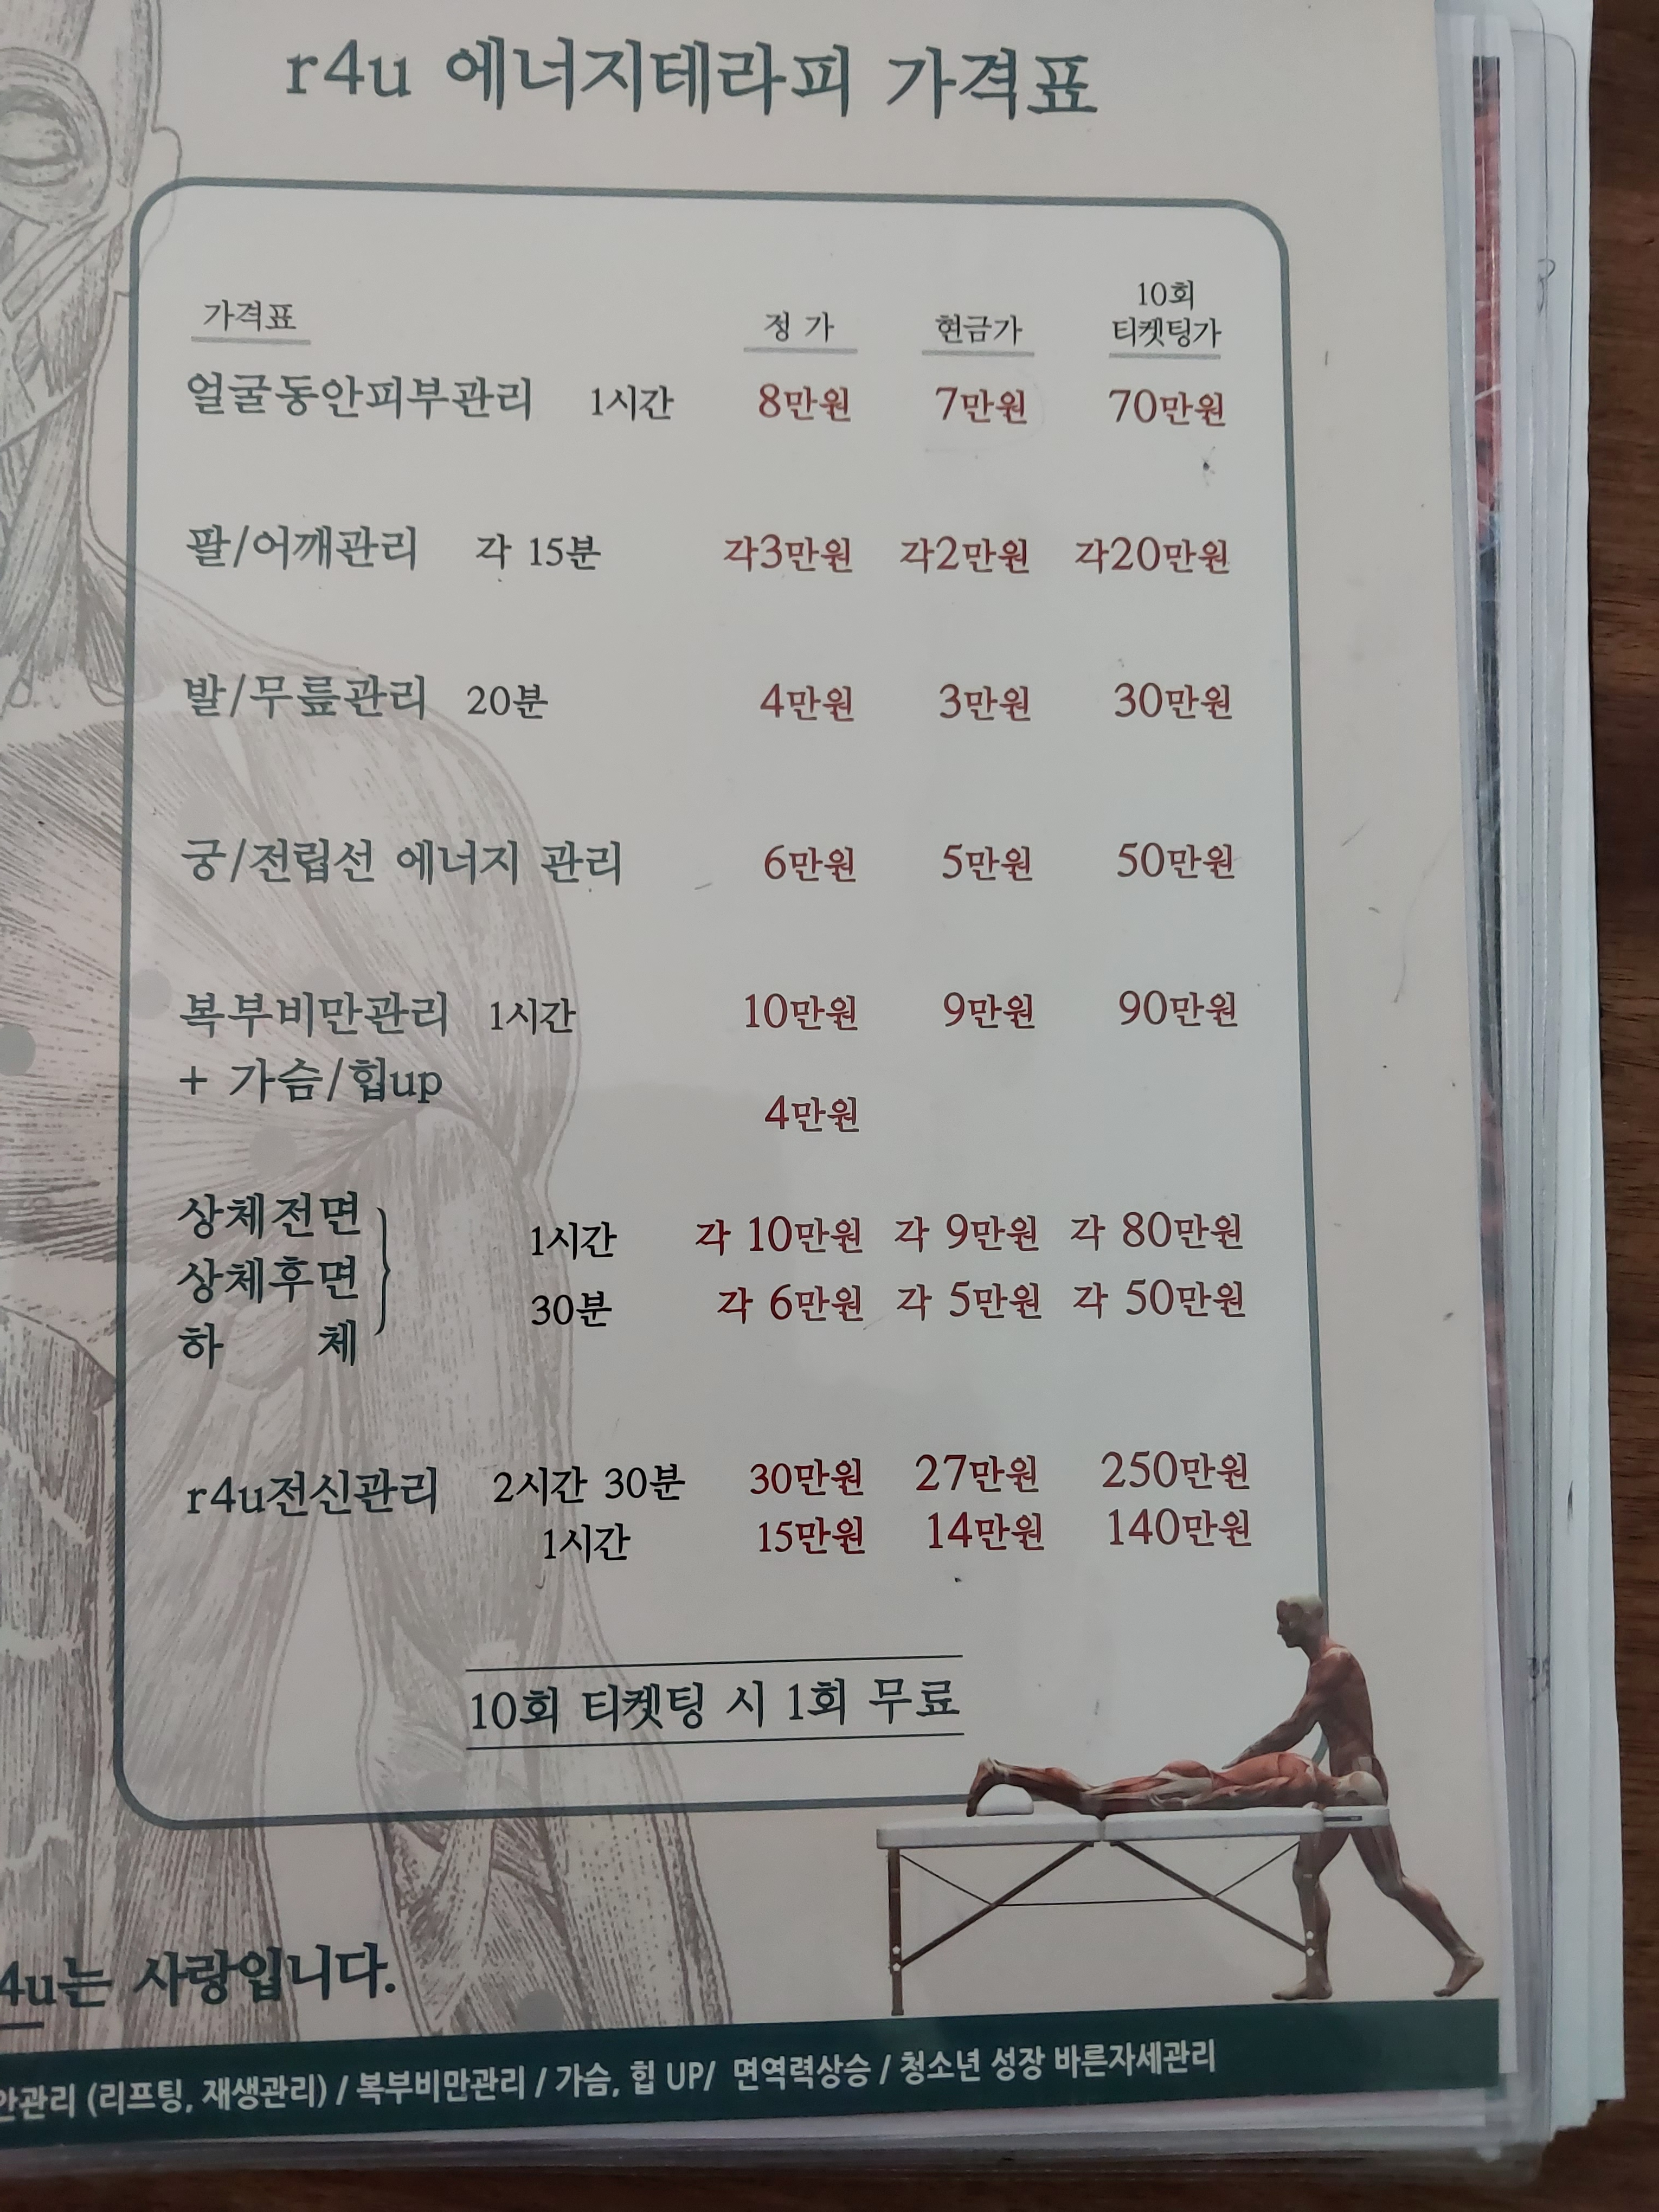 r4u 에너지테라피 가격표
가격표 정 가 현금가 10회 티켓팅가
얼굴동안피부관리 1시간 8만원 7만원 70만원
팔/어깨관리 각 15분 각3만원 각2만원 각20만원
발/무릎관리 20분 4만원 3만원 30만원
궁/전립선 에너지 관리 6만원 5만원 50만원
복부비만관리 1시간 10만원 9만원 90만원
+ 가슴/힙up 4만원
상체전면
상체후면
하 체
1시간 각 10만원 각 9만원 각 80만원
30분 각 6만원 각 5만원 각 50만원
r4u전신관리 2시간 30분 30만원 27만원 250만원
1시간 15만원 14만원 140만원
10회 티켓팅 시 1회 무료
4u는 사랑입니다.
안관리 (리프팅, 재생관리) / 복부비만관리 / 가슴, 힙 UP/ 면역력상승 / 청소년 성장 바른자세관리